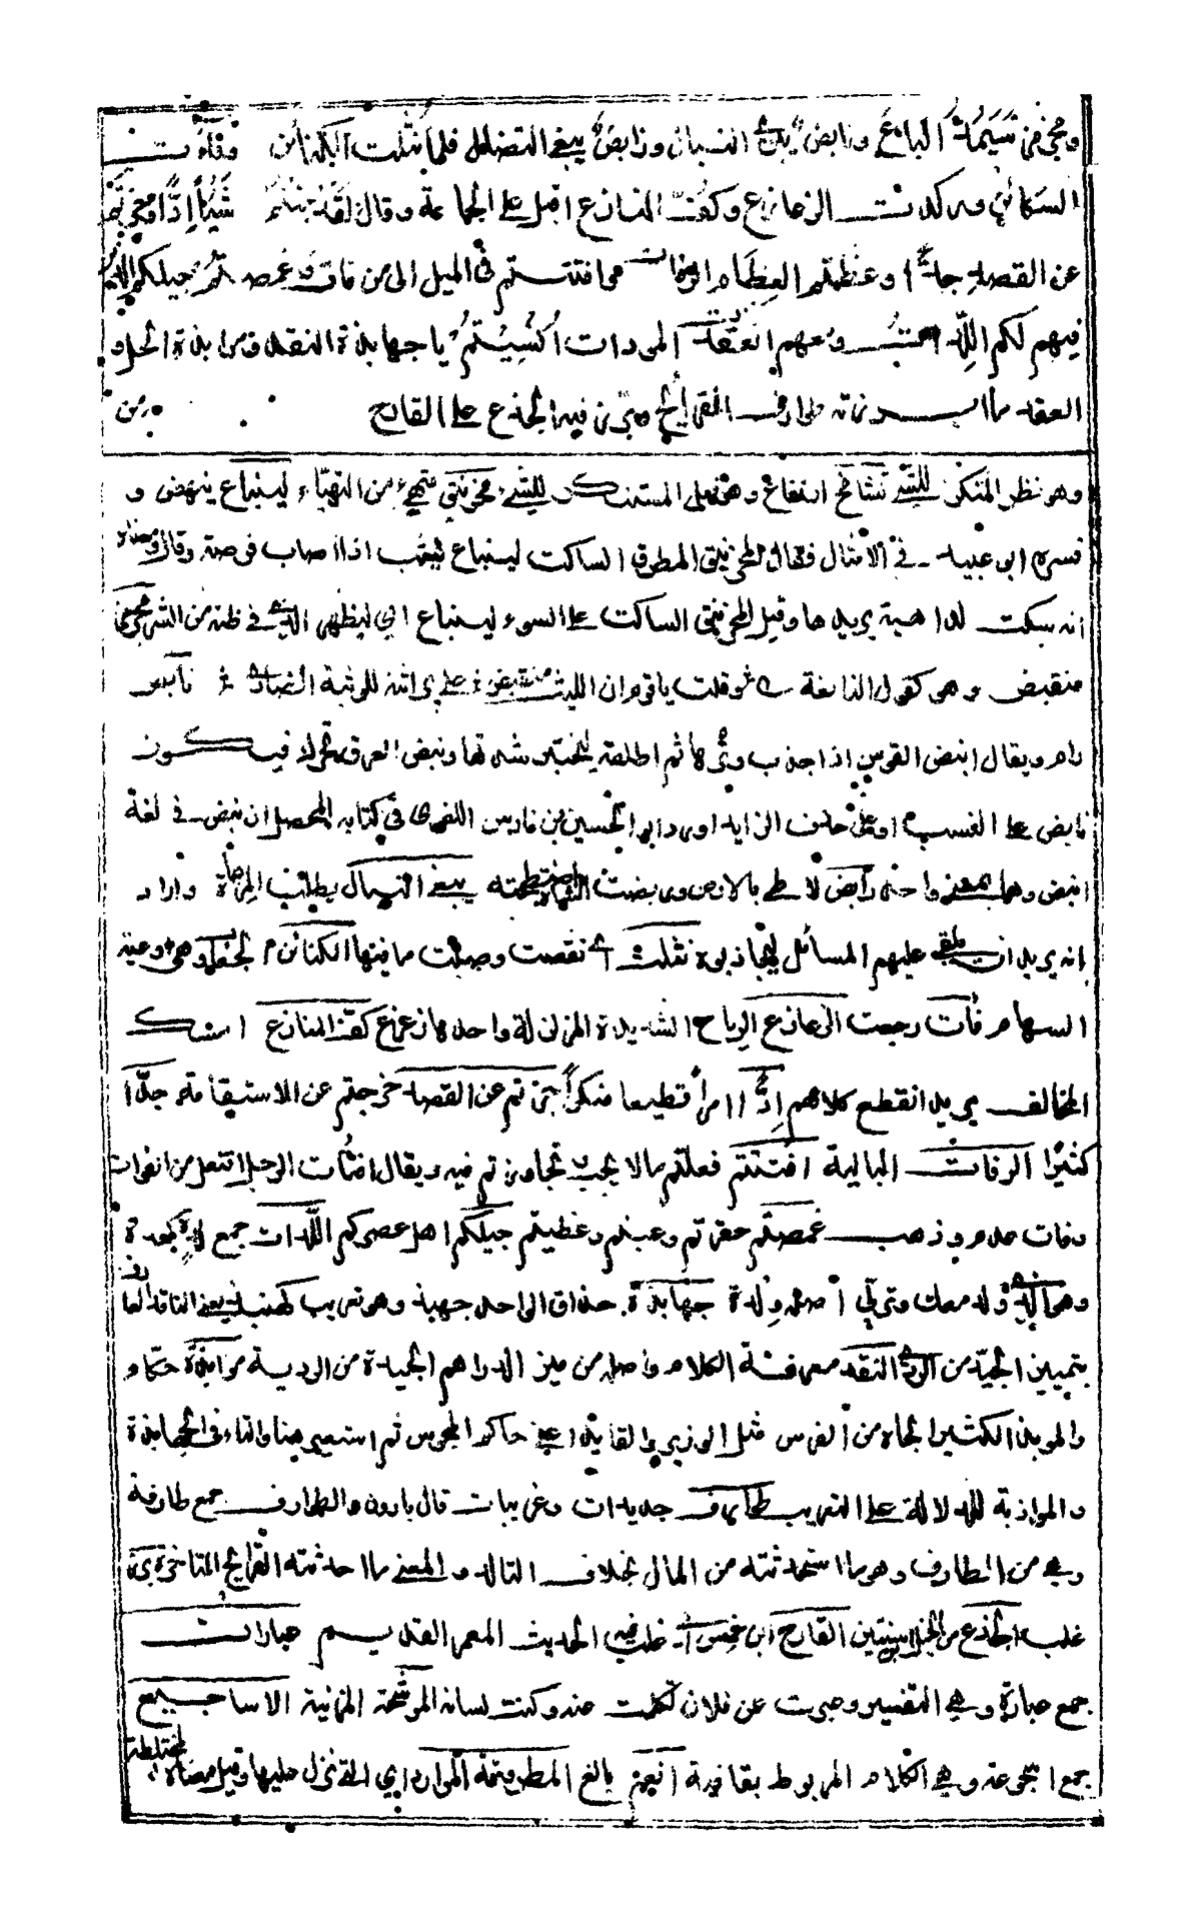 ومجرمز سيمد الباع ونابض يبري النبال ورابض يبغي النضال فلما نثلت الكنائن وفاءت
السكائن وركدت الزعازع وكف المنازع اقبل على الجماعة وقال لقد جئتم شيأ إدّا وجرتم
عن القصد جدّا وعظمتم العظام الرفات وافتتتم في الميل الى من فات وغمصتم جيلكم الذين
فيهم لكم اللدات ومعهم انعقدت المودات أنسيتم يا جهابذة النقد وموابذة الحل و
العقد ما ابرزته طوارف القرائح وبرز فيه الجذع على القارح من
وهو نظر المتكبر للشيء تشامخ انتفاخ وهو على المستنكر للشيء مخرنبق متهيئ من التهيّاء لينباع ينهض و
فسره ابو عبيد في الامثال فقال المخرنبق المطرق الساكت لينباع ليثب اذا اصاب فرصة وقال ومعناه
انه سكت لداهية يريدها وقيل المخرنبق الساكت على السوء لينباع اي ليظهر الذي في ظنه من الشر مجرمز
منقبض وهو كقول النابغة شعر وقلت يا قوم ان الليث منقبض على براثنه للوثبة الضاري نابض
رام ويقال انبض القوس اذا جذب وترها ثم اطلقه ليختبر شدتها ونبض العرق تحرك فيكون
نابض على النسب او على حذف الزايد اورد ابو الحسين بن فارس اللغوي في كتابه المجمل ان نبض في لغة
انبض وهما بمعنى واحد رابض لاطي بالارض وربضت يبغي النضال يطلب المراماة واراد
انه يريد ان يلقي عليهم المسائل ليتجاذبوه نثلت اي نفضت وصبت ما فيها الكنائن م الجعاب وهي اوعية
السهام فآت رجعت الزعازع الرياح الشديدة المزلزلة واحدها زعزع كف المنازع امسك
المخالف يريد انقطع كلامهم إدّا امرا فظيعا منكرا جرتم عن القصد خرجتم عن الاستقامة جدّا
كثيرا الرفات البالية افتتتم فعلتم ما لا يجب تجاوزتم فيه ويقال افتأت الرجل افتعل من الفوات
وفات عدم وذهب غمصتم حقرتم وعبتم وغطيتم جيلكم اهل عصركم اللدات جمع لدة كعدة
وهو الذي ولد معك وتربي اصله ولدة جهابذة حذاق الواحد جهبذ وهو تعريب كهبد يعني الناقد العارف
بتمييز الجيد من الردي النقد معرفة الكلام واصله من ميز الدراهم الجيدة من الردية موابذة حكام
والموبذ الكثير الجاه من الفرس مثل الوزير والقايد اعني حاكم المجوس ثم استعير هنا والتاء في الجهابذة
والموابذة للدلالة على التعريب طوارف جديدات وغريبات قال بارون والطوارف جمع طارفة
وهي من الطارف وهو ما استحدثته من المال بخلاف التالد والمعنى ما احدثته القرائح المتاخرة برز
غلب الجذع من الخيل ابن سنتين القارح ابن خمس اي غلب فيه الحديث المعمر القديم عبارات
جمع عبارة وهي التفسير وعبرت عن فلان تكلمت عنه وكنت لسانه الموشحة المزينة الاساجيع
جمع اسجوعة وهي الكلام المربوط بقافية انعم بالغ المطروقة الموارد اي التي نزل عليها وقيل معناه المختلطة